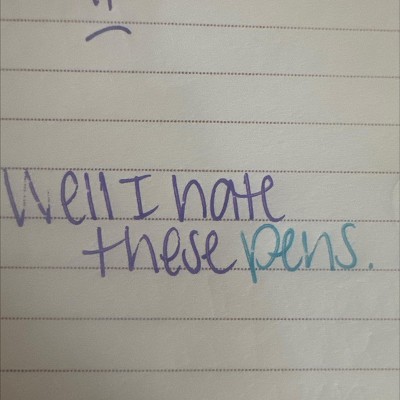 Well I hate
these pens.